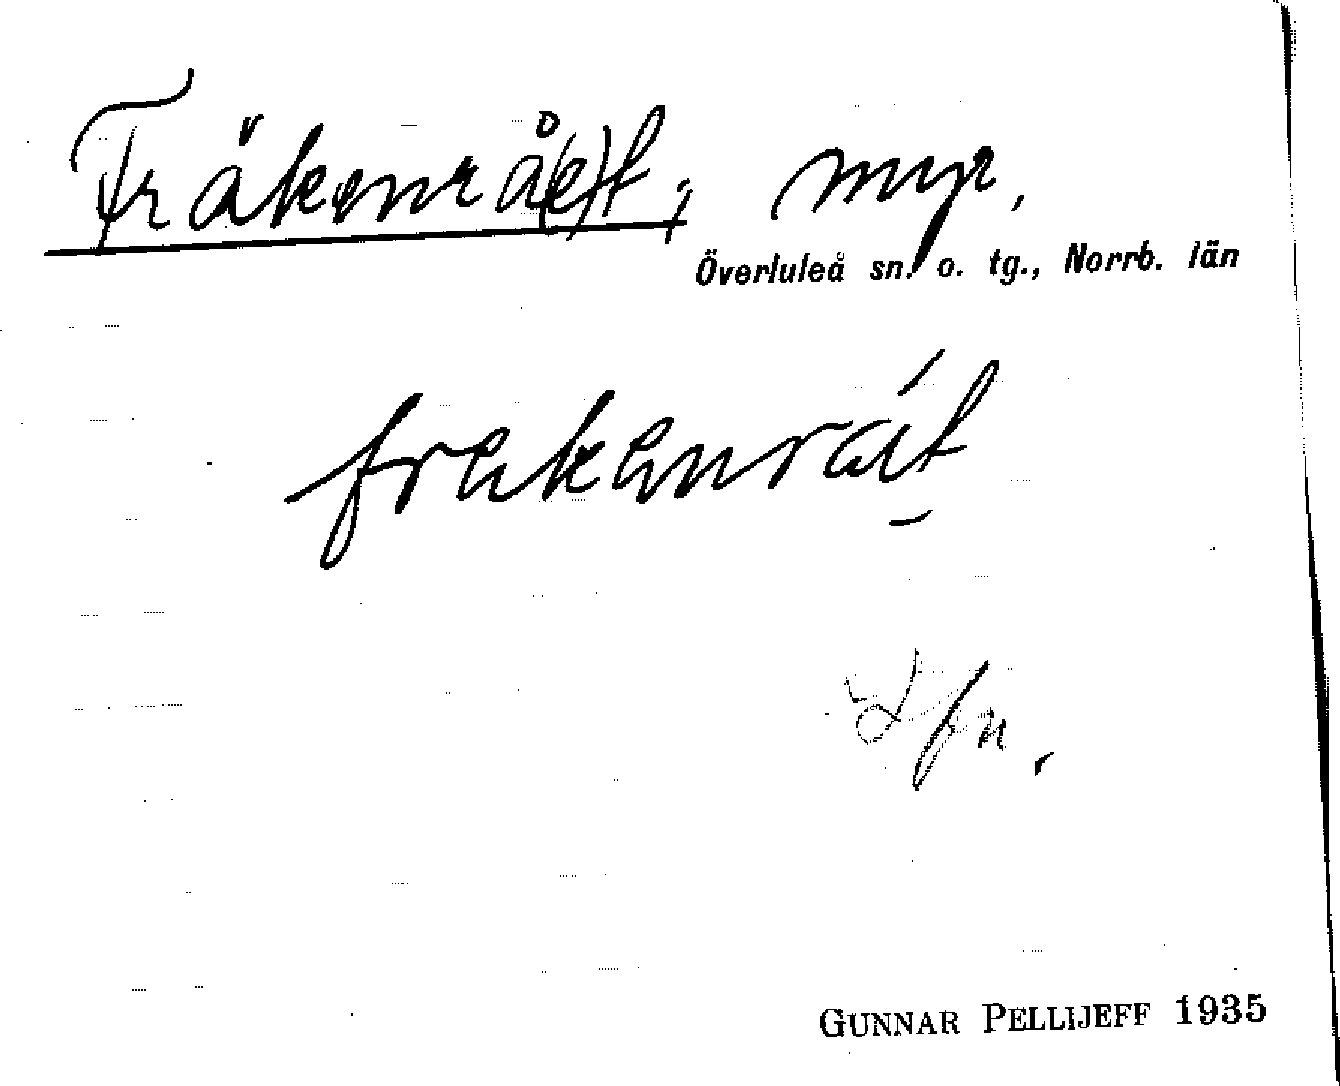 Fräkenrå(e)t, myr.
Överluleå sn. o. tg., Norrb. län
frekenráit
GUNNAR PELLIJEFF 1935